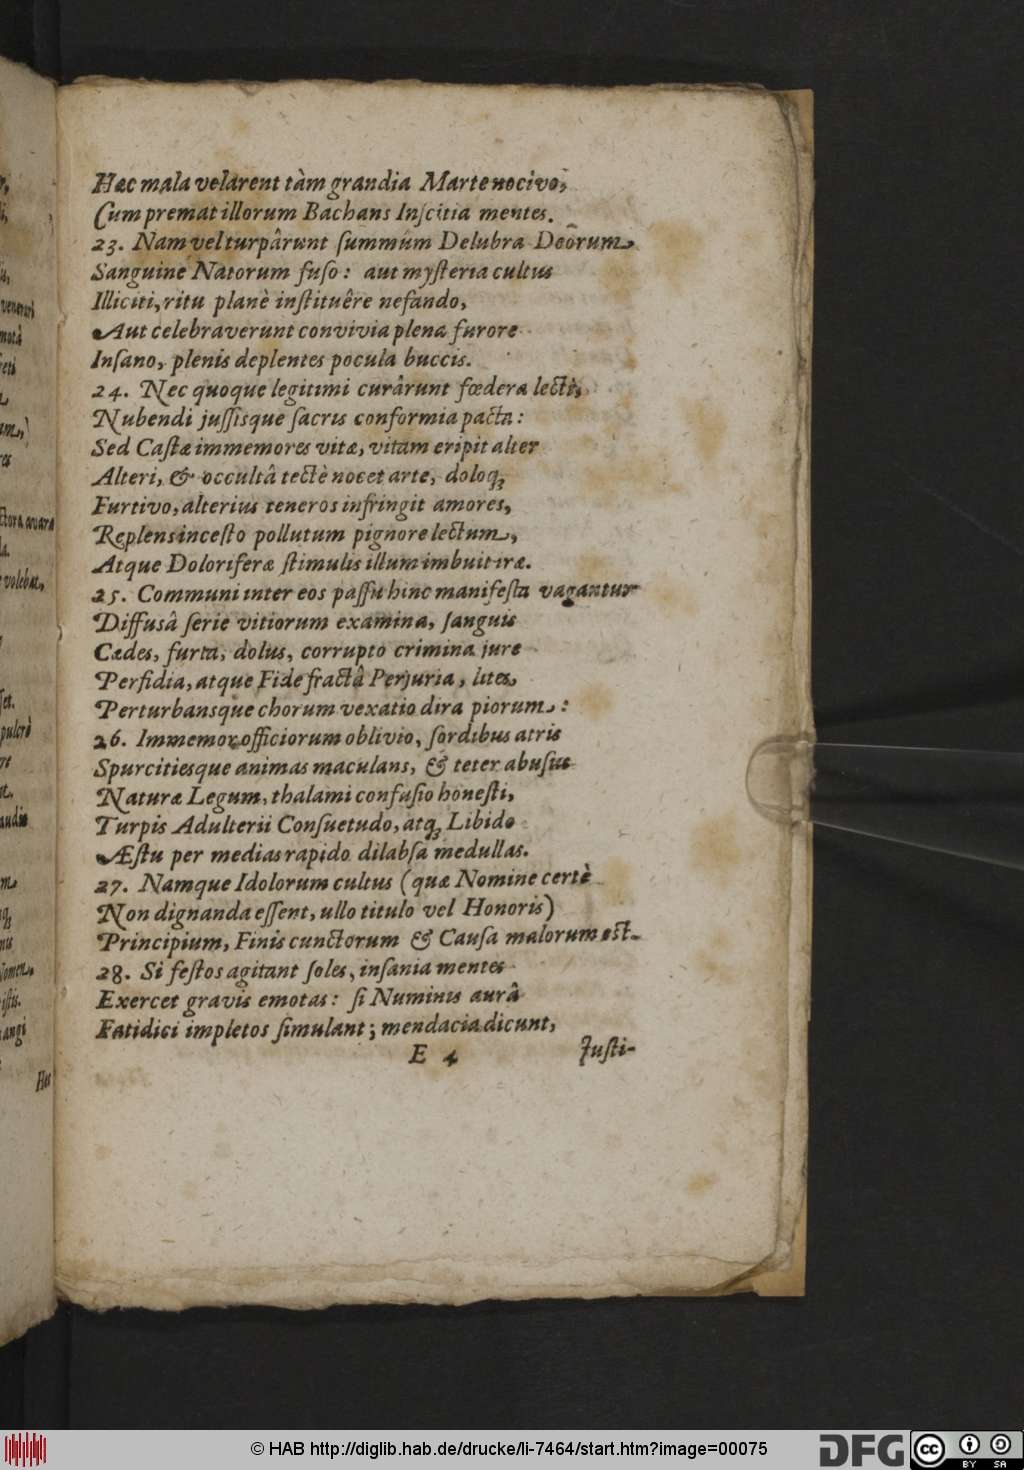 Hæc mala velarent tàm grandia Marte nocivo,
Cum premat illorum Bachans Inscitia mentes.
23. Nam vel turpârunt summûm Delubra Deôrum
Sanguine Natorum fuso: aut mysteria cultus
Illiciti, ritu planè instituêre nefando,
Aut celebraverunt convivia plena furore
Insano, plenis deplentes pocula buccis.
24. Nec quoque legitimi curârunt fœdera lecti,
Nubendi jussisque sacris conformia pacta:
Sed Castæ immemores vitæ, vitam eripit alter
Alteri, & occultâ tectè nocet arte, doloq;
Furtivo, alterius teneros infringit amores,
Replens incesto pollutum pignore lectum,
Atque Doloriferæ stimulis illum imbuit iræ.
25. Communi inter eos passu hinc manifesta vagantur
Diffusâ serie vitiorum examina, sanguis
Cædes, furta, dolus, corrupto crimina jure
Perfidia, atque Fide fractâ Perjuria, lites,
Perturbansque chorum vexatio dira piorum:
26. Immemor officiorum oblivio, sordibus atris
Spurcitiesque animas maculans, & teter abusus
Naturæ Legum, thalami confusio honesti,
Turpis Adulterii Consuetudo, atq; Libido
Æstu per medias rapido dilabsa medullas.
27. Namque Idolorum cultus (quæ Nomine certè
Non dignanda essent, ullo titulo vel Honoris)
Principium, Finis cunctorum & Causa malorum est.
28. Si festos agitant soles, insania mentes
Exercet gravis emotas: si Numinis aurâ
Fatidici impletos simulant; mendacia dicunt,
E 4
Justi-
© HAB http://diglib.hab.de/drucke/li-7464/start.htm?image=00075
DFG
cc
BY SA